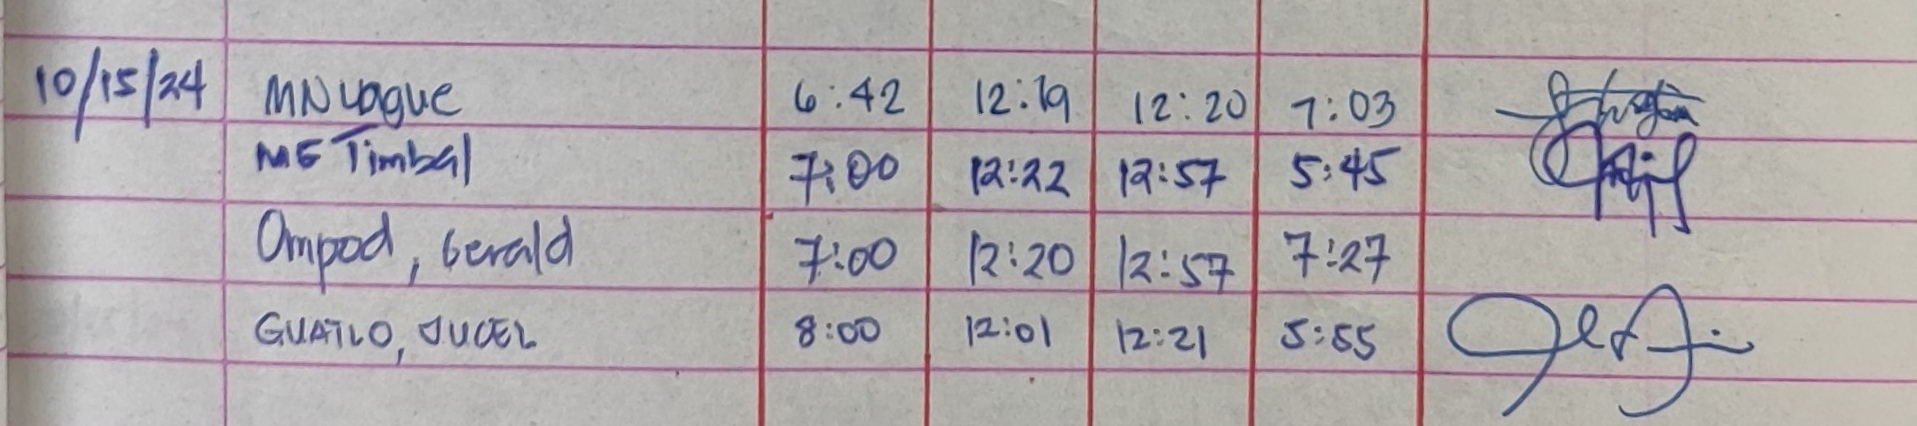 10/15/24 MN Logue 6:42 12:19 12:20 7:03
ME Timbal 7:00 12:22 12:57 5:45
Ompod, Gerald 7:00 12:20 12:57 7:27
GUATLO, JUCEL 8:00 12:01 12:21 5:55